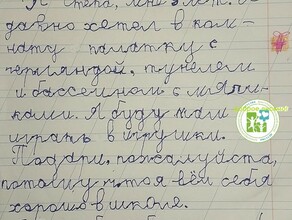 Я Стёпа, мне 8 лет. Я
давно хетел в ком-
нату палатку с
герляндой, тунелем
и бассейном с мячи-
ками. Я буду там
играть в игрушки.
Подари, пожалуйста,
потому што я вёл себя
хорошо в школе.